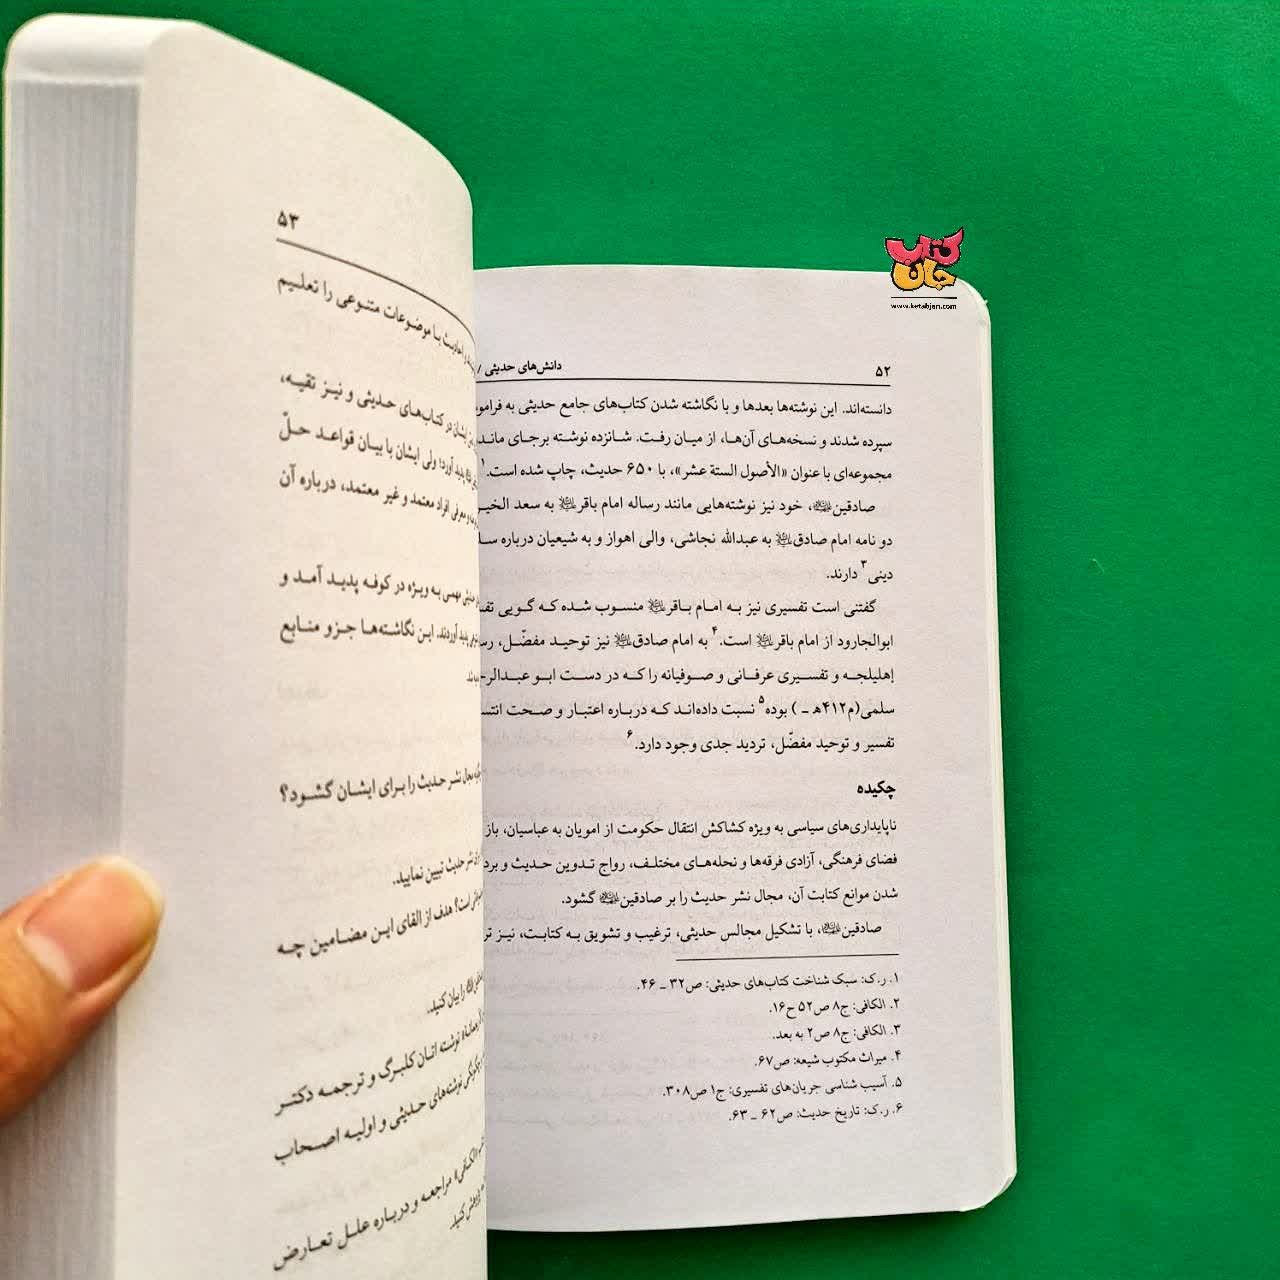 کتاب
جان
www.ketabjan.com
۵۲
دانش‌های حدیثی /
دانسته‌اند. این نوشته‌ها بعدها و با نگاشته شدن کتاب‌های جامع حدیثی به
سپرده شدند و نسخه‌های آن‌ها، از میان رفت. شانزده نوشته برجای
مجموعه‌ای با عنوان «الأصول الستة عشر»، با ۶۵۰ حدیث، چاپ شده است.۱
صادقین، خود نیز نوشته‌هایی مانند رساله امام باقر به سعد
دو نامه امام صادق به عبدالله نجاشی، والی اهواز و به شیعیان درباره
دینی۳ دارند.
گفتنی است تفسیری نیز به امام باقر منسوب شده که گویی
ابوالجارود از امام باقر است.۴ به امام صادق نیز توحید مفضّل،
إهلیلجه و تفسیری عرفانی و صوفیانه را که در دست ابو
سلمی(م۴۱۲هـ ـ ) بوده۵ نسبت داده‌اند که درباره اعتبار و صحت
تفسیر و توحید مفضّل، تردید جدی وجود دارد.۶
چکیده
ناپایداری‌های سیاسی به ویژه کشاکش انتقال حکومت از امویان به عباسیان، باز
فضای فرهنگی، آزادی فرقه‌ها و نحله‌های مختلف، رواج تدوین حدیث و
شدن موانع کتابت آن، مجال نشر حدیث را بر صادقین گشود.
صادقین، با تشکیل مجالس حدیثی، ترغیب و تشویق به کتابت، نیز
۱. ر.ک: سبک شناخت کتاب‌های حدیثی: ص۳۲ ـ ۴۶.
۲. الکافی: ج۸ ص۵۲ ح۱۶.
۳. الکافی: ج۸ ص۲ به بعد.
۴. میراث مکتوب شیعه: ص۶۷.
۵. آسیب شناسی جریان‌های تفسیری: ج۱ ص۳۰۸.
۶. ر.ک: تاریخ حدیث: ص۶۲ ـ ۶۳.
۵۳
احادیث با موضوعات متنوعی را تعلیم
ایشان در کتاب‌های حدیثی و نیز تقیه،
پدید آورد؛ ولی ایشان با بیان قواعد حلّ
و معرفی افراد معتمد و غیر معتمد، درباره آن
حدیثی مهمی به ویژه در کوفه پدید آمد و
پدید آوردند. این نگاشته‌ها جزو منابع
مجال نشر حدیث را برای ایشان گشود؟
نشر حدیث تبیین نمایید.
است؟ هدف از القای این مضامین چه
را بیان کنید.
نوشته اتان کلبرگ و ترجمه دکتر
نوشته‌های حدیثی و اولیه اصحاب
الکافی» مراجعه و درباره علل تعارض
کنید.